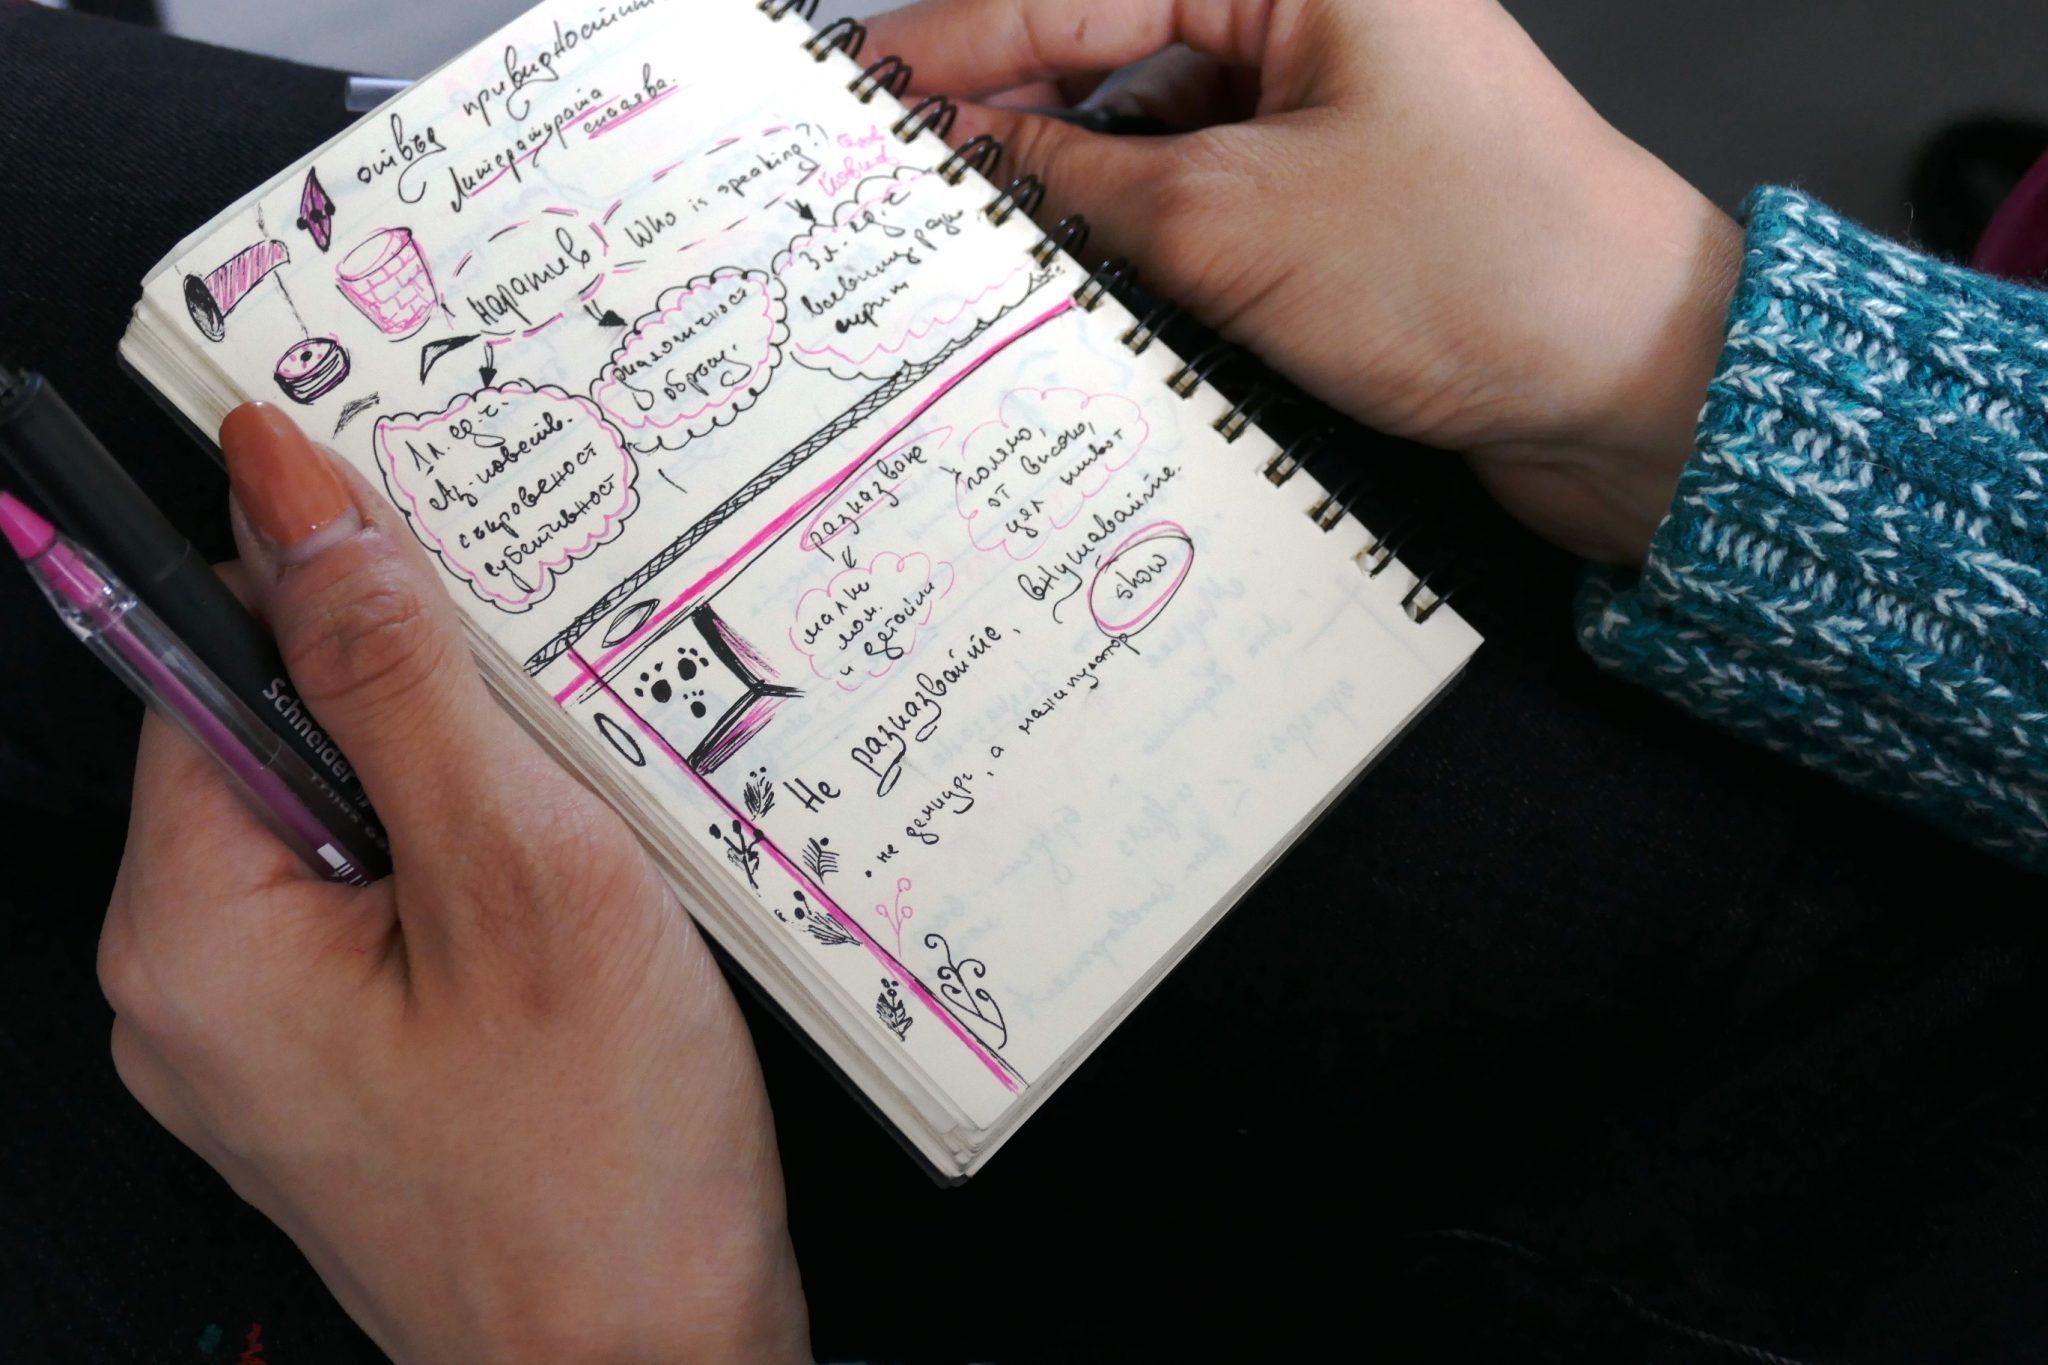 отвъд привидностите
Литературата
сплотява.
Наратив
Who is speaking?
1 л. ед. ч.
Аз-повеств.
съкровеност
субективност
диалогичност
обръщ.
3 л. ед. ч.
всевиждащ
разказване
малки
мом.
и детайли
голямо,
от високо,
цял живот
Не разказвайте,
внушавайте.
show
• не демиург, а манипулатор
Schneider